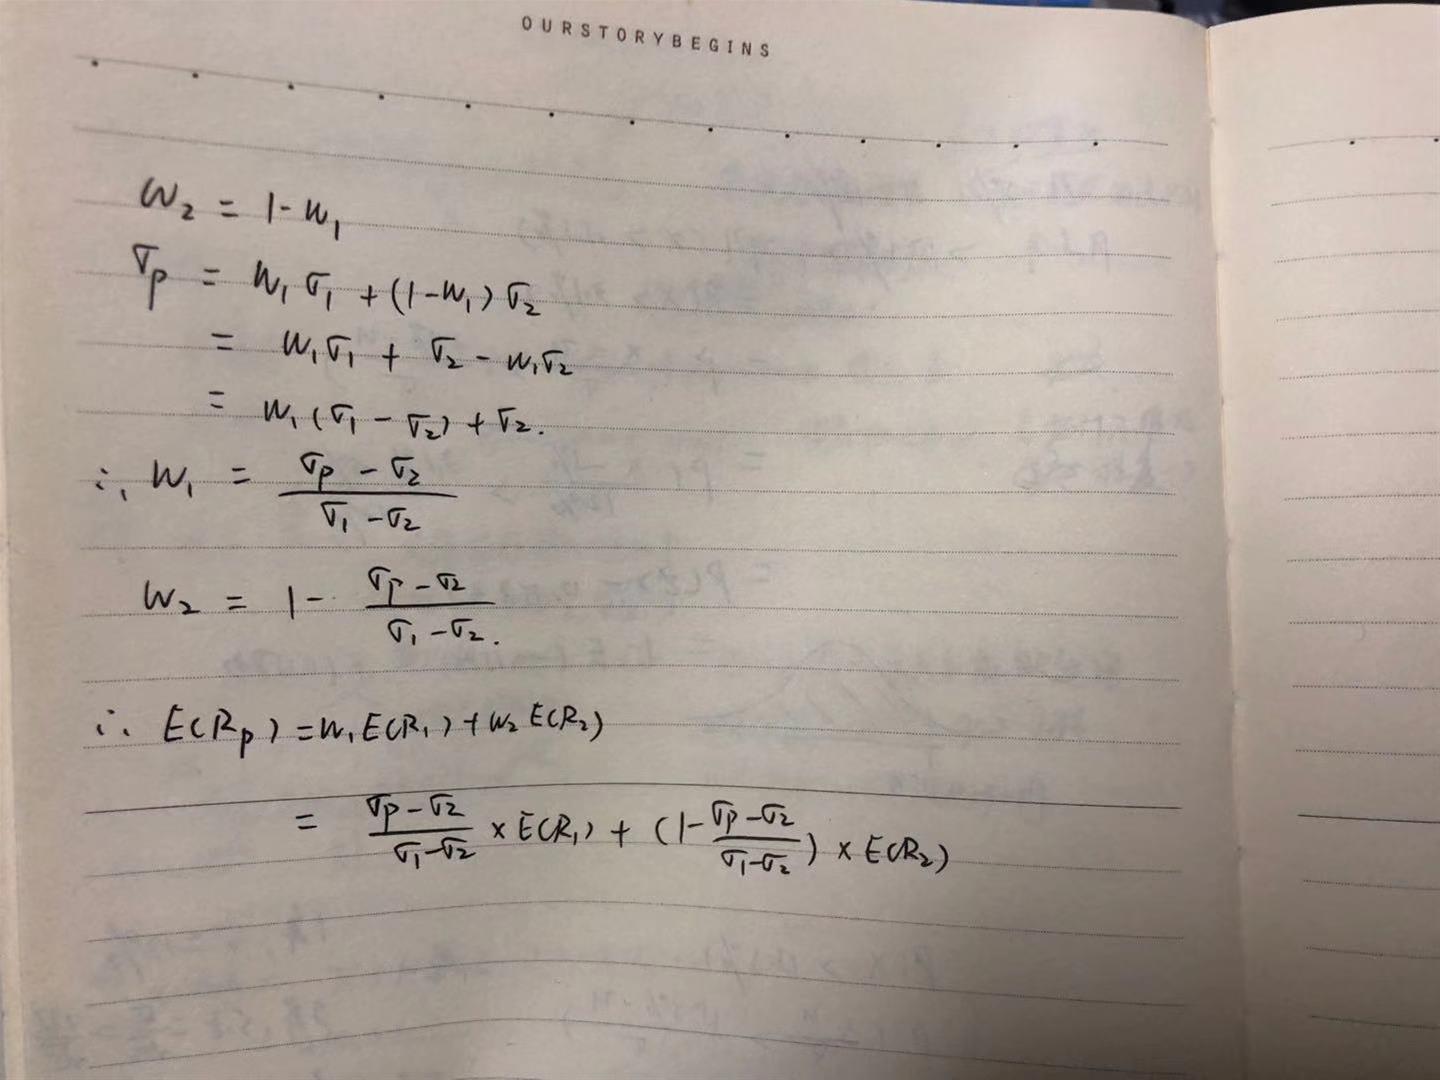 OURSTORYBEGINS
W₂ = 1-W₁
σp = W₁σ₁+(1-W₁)σ₂
= W₁σ₁ + σ₂ - W₁σ₂
= W₁(σ₁-σ₂)+σ₂.
∴ W₁ = (σp-σ₂)/(σ₁-σ₂)
W₂ = 1- (σp-σ₂)/(σ₁-σ₂).
∴ E(Rp)=W₁E(R₁)+W₂E(R₂)
= (σp-σ₂)/(σ₁-σ₂) × E(R₁) + (1-(σp-σ₂)/(σ₁-σ₂)) × E(R₂)